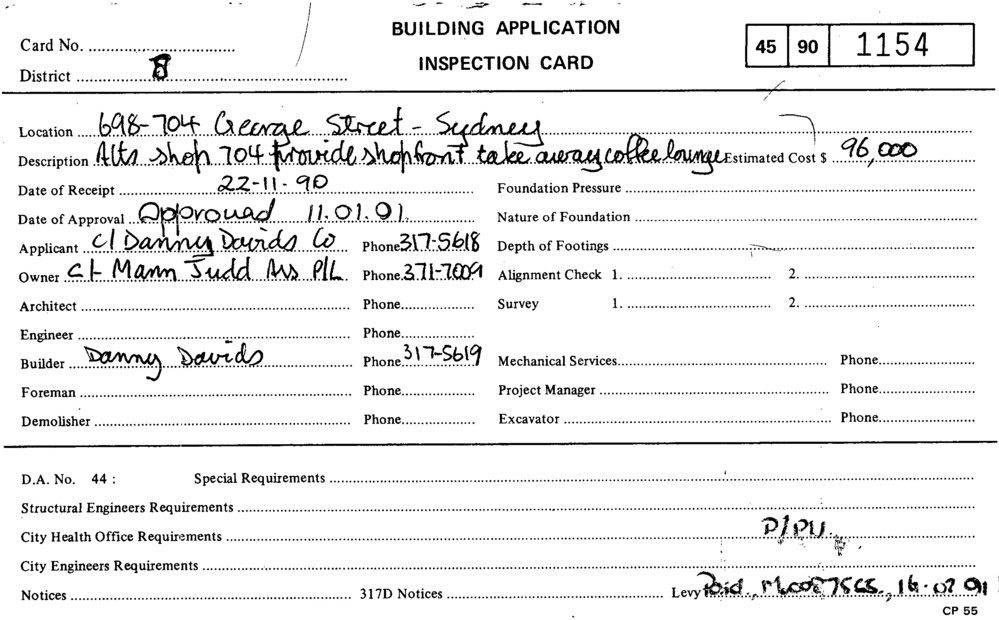 BUILDING APPLICATION
INSPECTION CARD
45 90 1154
Card No.
District 8
Location 698-704 George Street - Sydney
Description Alts shop 704 provide shopfront take away coffee lounge Estimated Cost $ 96,000
Date of Receipt 22-11-90 Foundation Pressure
Date of Approval Approuad 11.01.91. Nature of Foundation
Applicant C/ Danny Davids Co Phone 317-5618 Depth of Footings
Owner C/- Mann Judd P/L Phone 371-7009 Alignment Check 1. 2.
Architect Phone Survey 1. 2.
Engineer Phone
Builder Danny Davids Phone 317-5619 Mechanical Services Phone
Foreman Phone Project Manager Phone
Demolisher Phone Excavator Phone
D.A. No. 44 : Special Requirements
Structural Engineers Requirements
City Health Office Requirements P/PU
City Engineers Requirements
Notices 317D Notices Levy Paid 91
CP 55